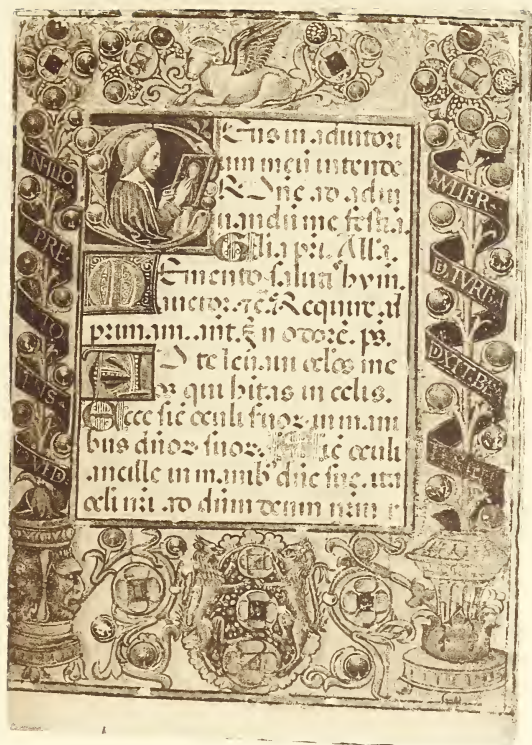 Eus in adiutori
um meū intende
Dn̄e ad adiu
uandū me festīa
Glīa pri. Allā
Emento salutꝭ hym.
auctor. ⁊c̄. Require aī
primam. ant. in odorē. ps.
D te leuaui oc̄los me
os qui hitas in celis.
Ecce sic̄ oculi suoꝝ in mani
bus dn̄oꝝ suoꝝ. Sic̄ oculi
ancille in manibꝰ dn̄e sue, ita
oc̄li nr̄i ad dn̄m deum nrm
IN ILLO
PRE
TVS
MVLIER
D. TVRBA
DXIT